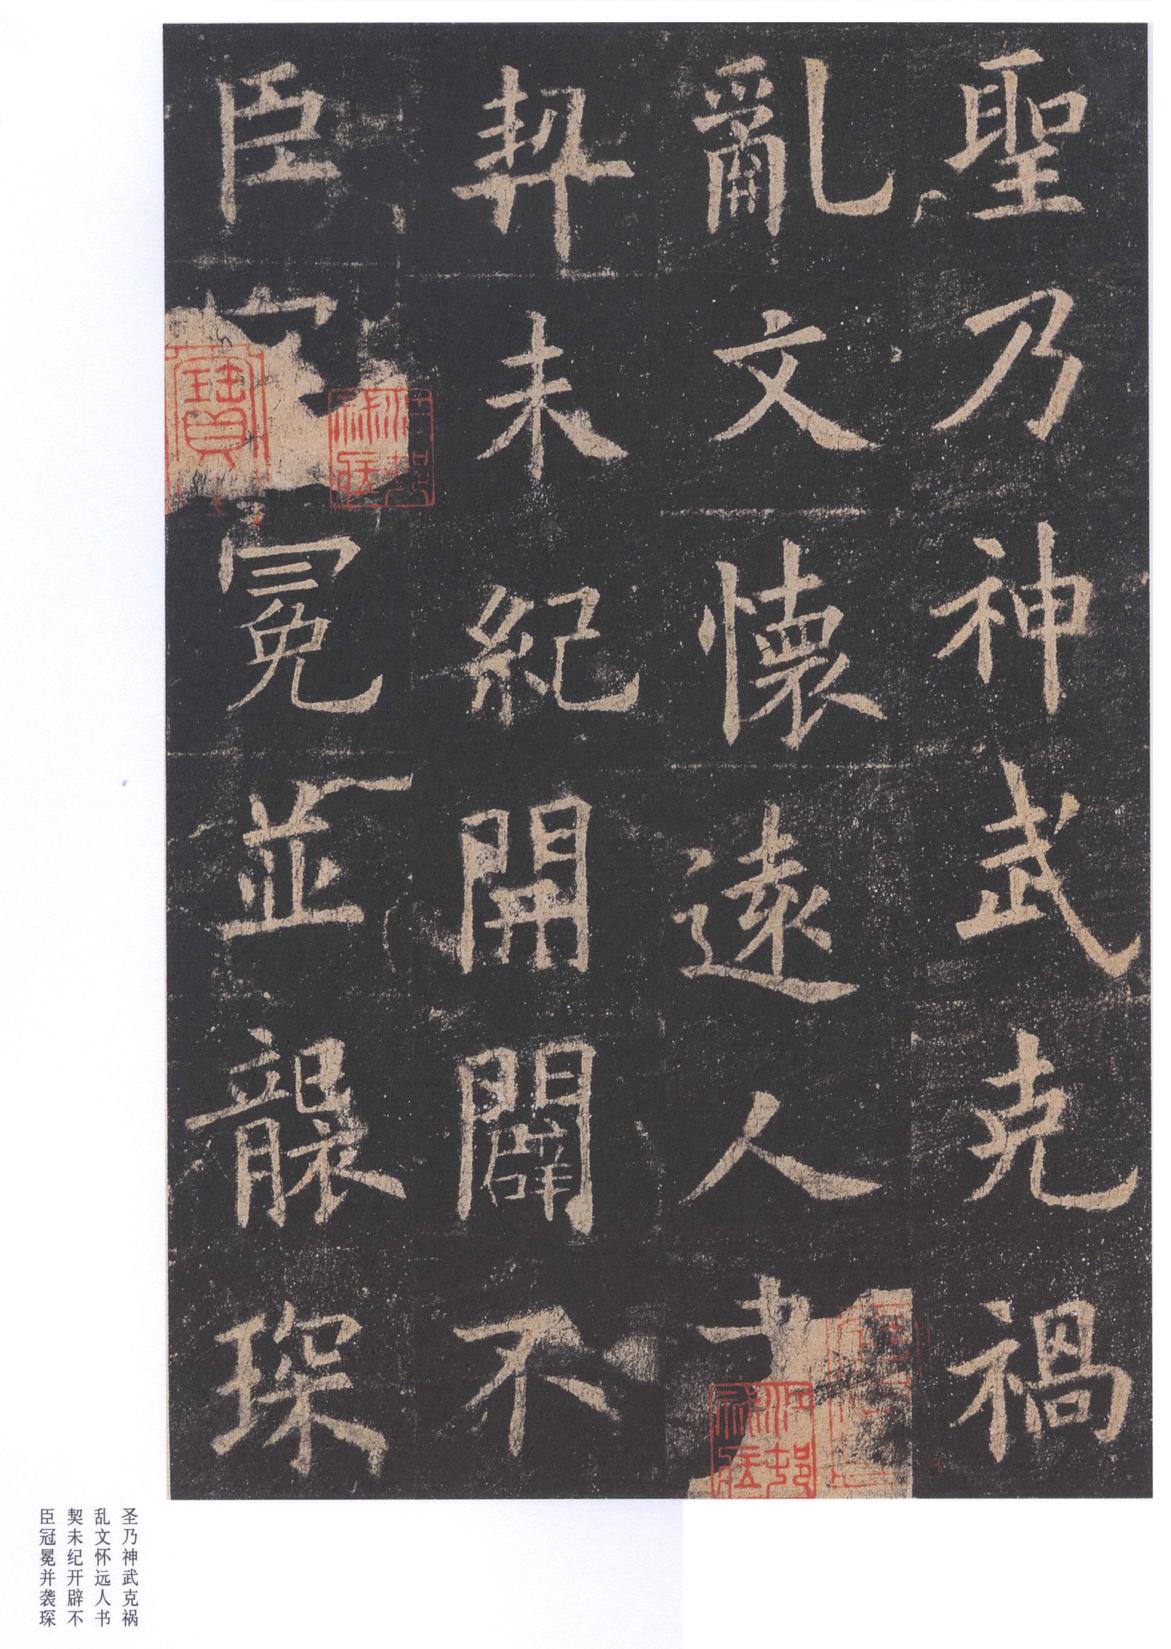 聖乃神武克禍
亂文懷遠人書
契未紀開闢不
臣冠冕並襲琛
圣乃神武克祸
乱文怀远人书
契未纪开辟不
臣冠冕并袭琛